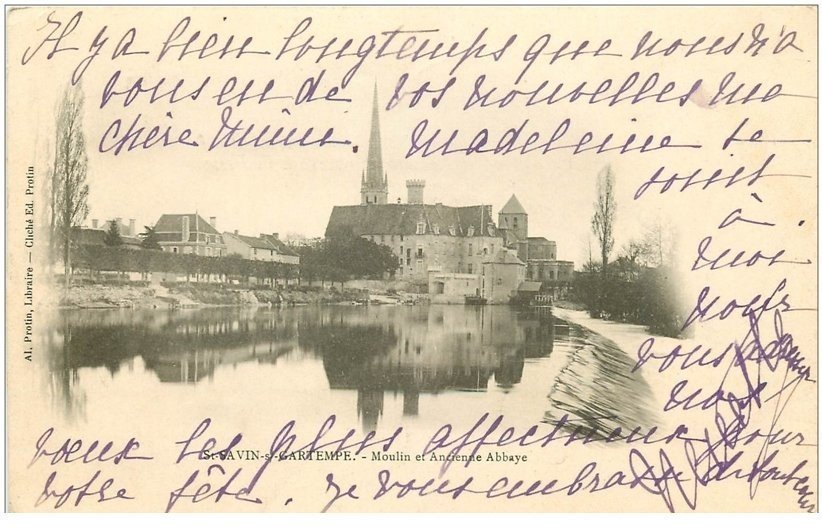 Il y a bien longtemps que nous n'a
vons eu de vos nouvelles ma
chère Mimi. Madeleine se
joint
à
moi
pour
vous adresser
nos
vœux les plus affectueux pour
votre fête. Je vous embrasse
ST-SAVIN-s-GARTEMPE. - Moulin et Ancienne Abbaye
Al. Protin, Libraire — Cliché Ed. Protin